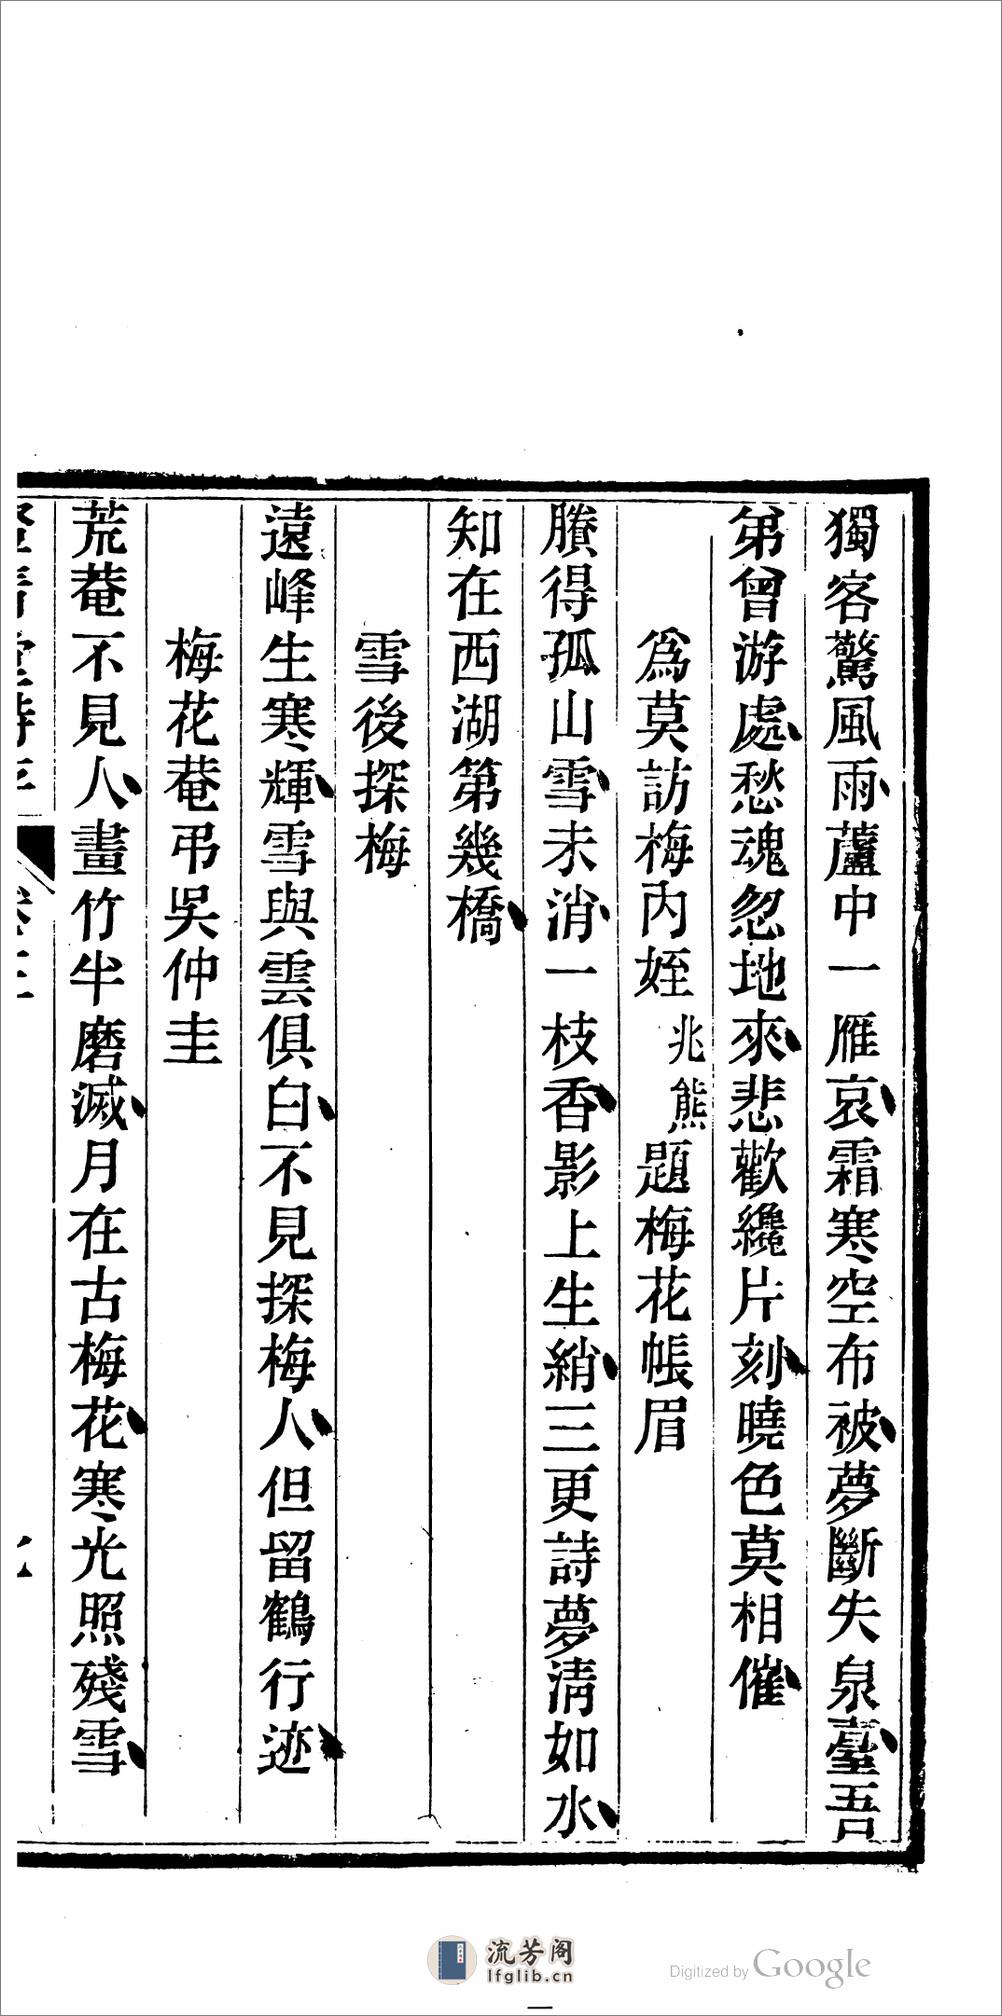 獨客驚風雨蘆中一雁哀霜寒空布被夢斷失泉臺吾
弟曾游處愁魂忽地來悲歡纔片刻曉色莫相催
爲莫訪梅內姪兆熊題梅花帳眉
賸得孤山雪未消一枝香影上生綃三更詩夢淸如水
知在西湖第幾橋
雪後探梅
遠峰生寒輝雪與雲俱白不見探梅人但留鶴行迹
梅花菴弔吳仲圭
荒菴不見人畫竹半磨滅月在古梅花寒光照殘雪
流芳阁
lfglib.cn
Digitized by Google